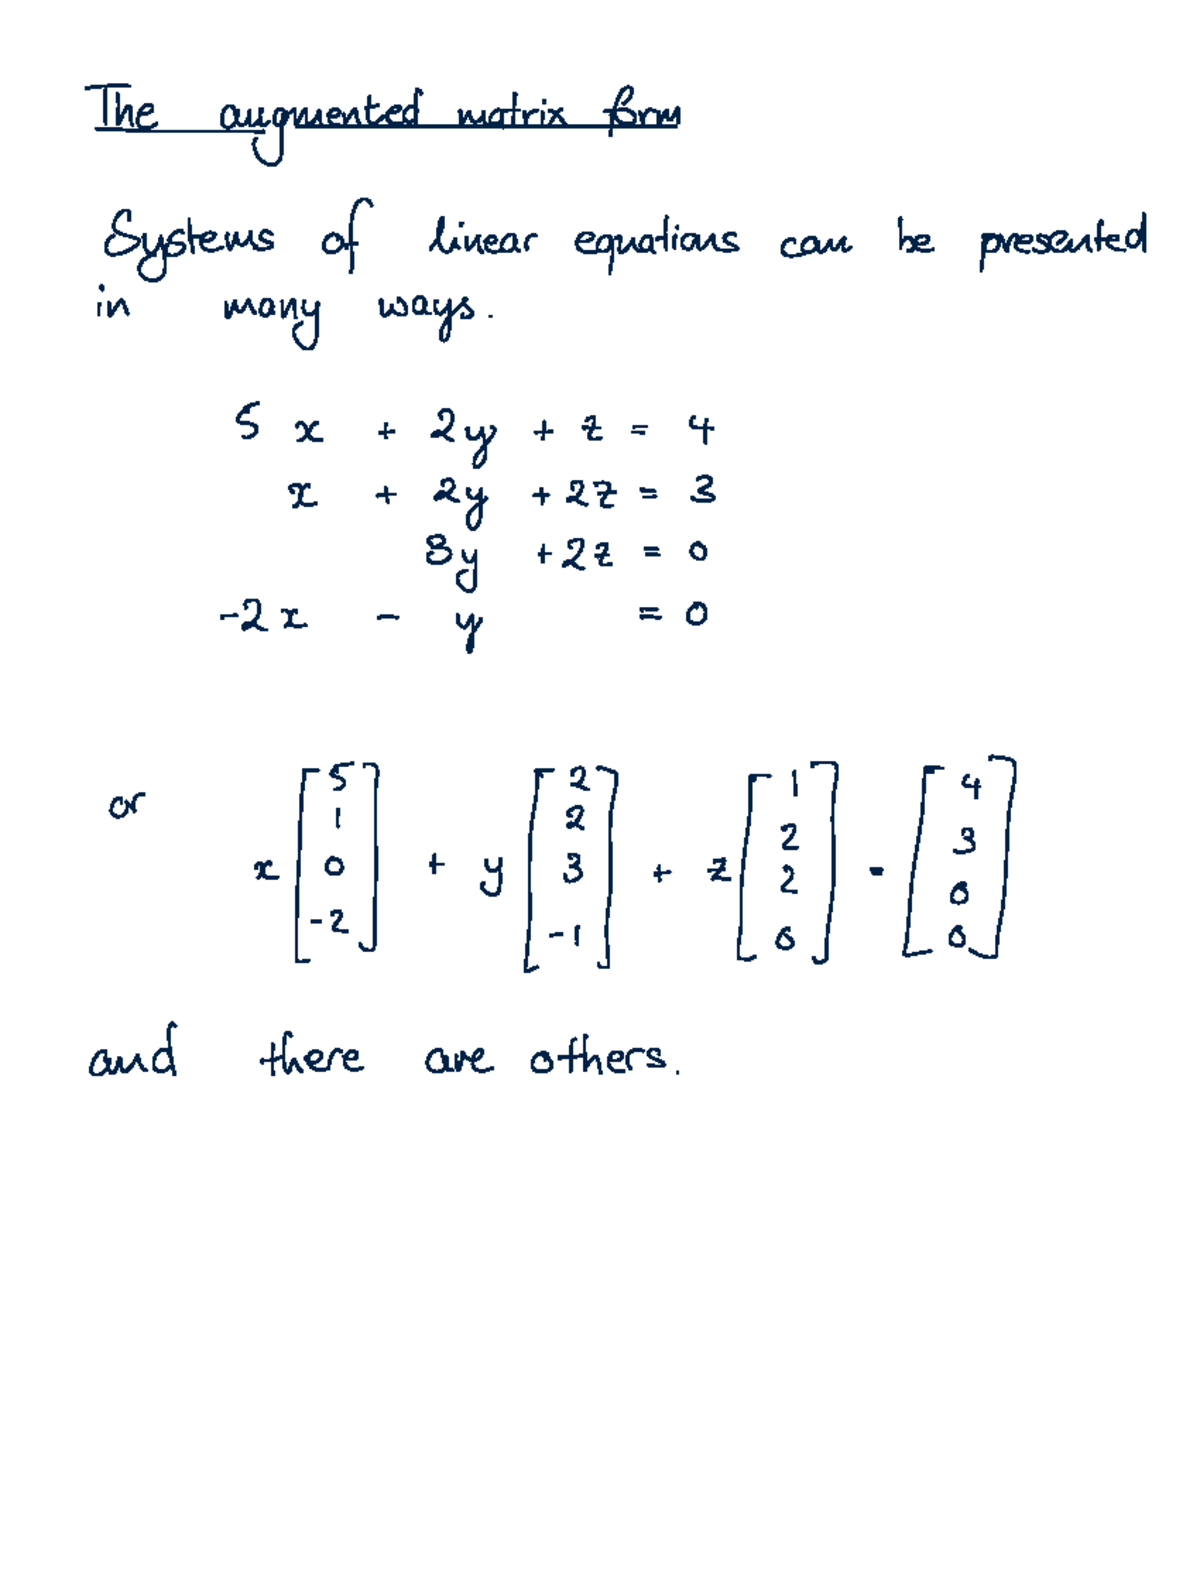 The augmented matrix form
Systems of linear equations can be presented
in many ways.
5x + 2y + z = 4
x + 2y + 2z = 3
3y + 2z = 0
-2x - y = 0
or x [5 1 0 -2] + y [2 2 3 -1] + z [1 2 2 0] = [4 3 0 0]
and there are others.